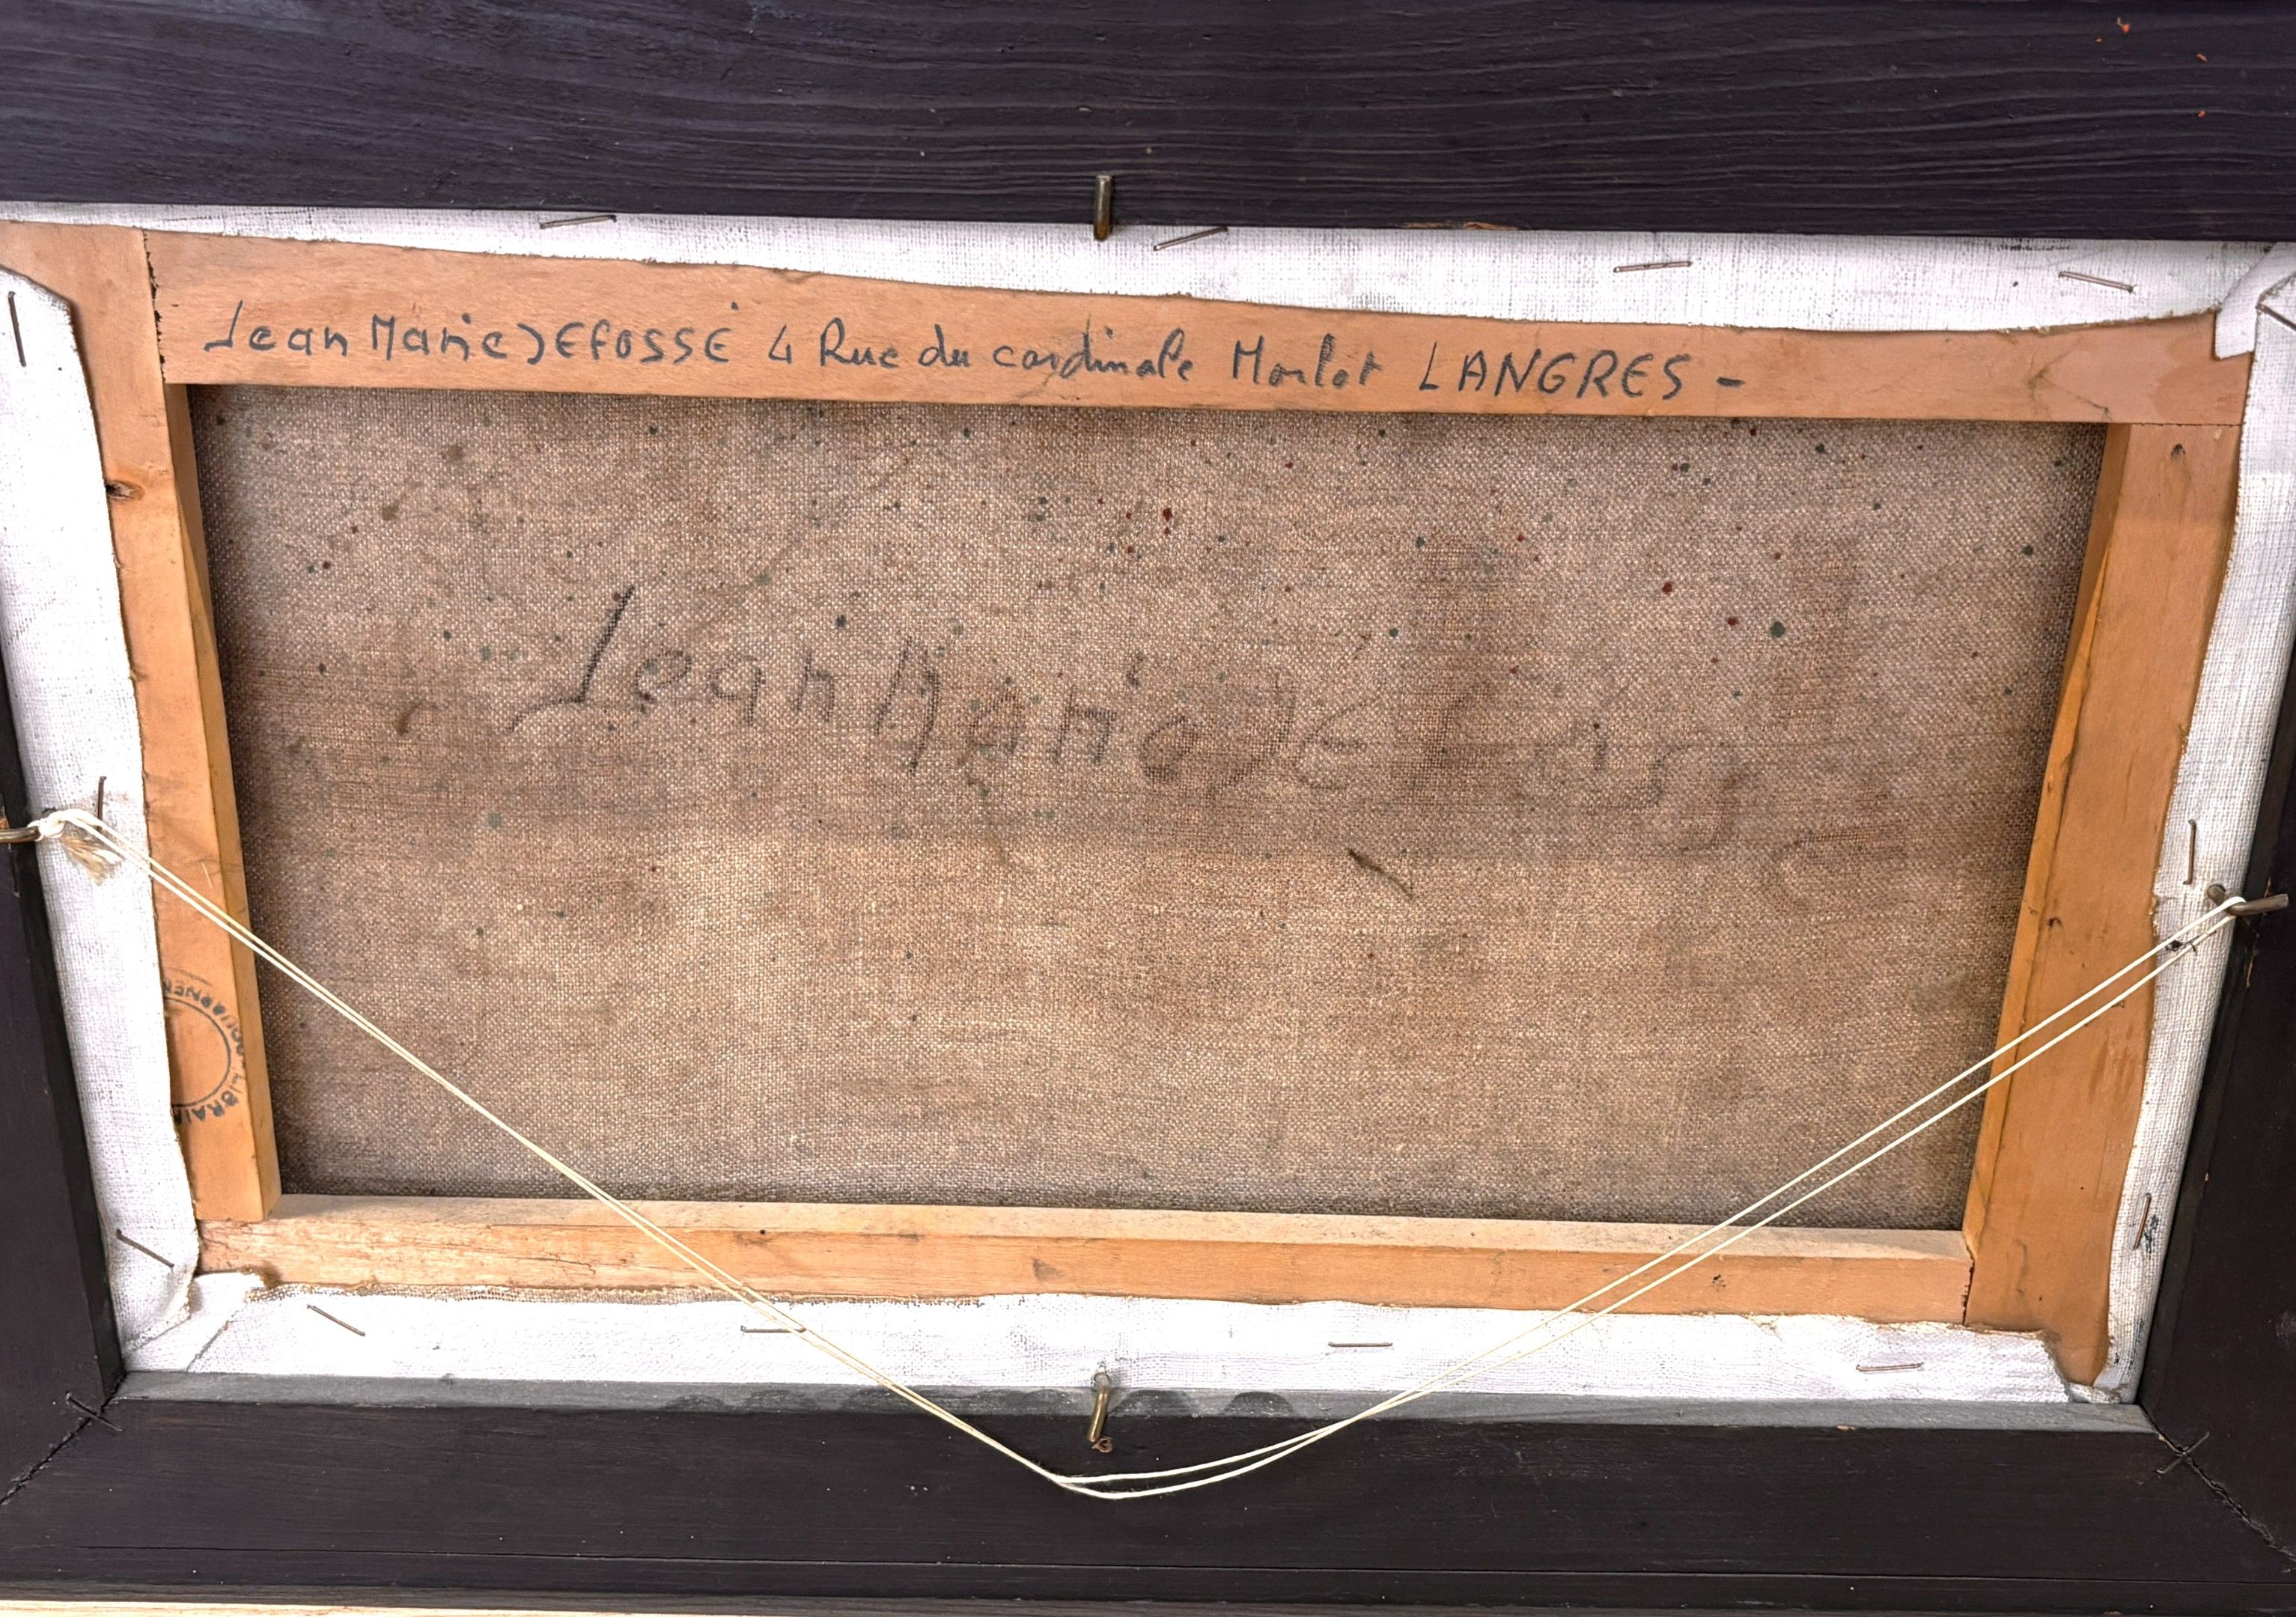 Jean Marie DEfOSSÉ 4 Rue du cardinale Morlot LANGRES -
Jean Marie DÉ